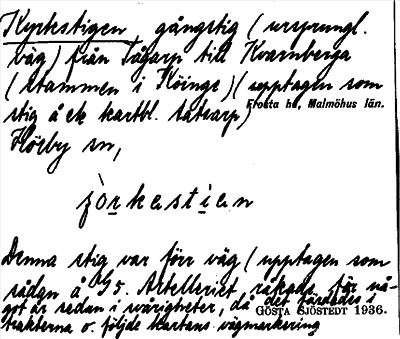 Kyrkestigen, gångstig (ursprungl.
väg) från Sågarp till Kvarnberga
(stammen i Köinge) (upptagen som
stig å ek kartbl.
Frosta hd, Malmöhus län.
Hörby sn,
Denna stig var förr väg (upptagen som
sådan å
Artelleriet råkade för nå-
got år sedan i svårigheter, då det färdades i
GÖSTA SJÖSTEDT 1936.
trakterna o. följde kartans vägmarkering